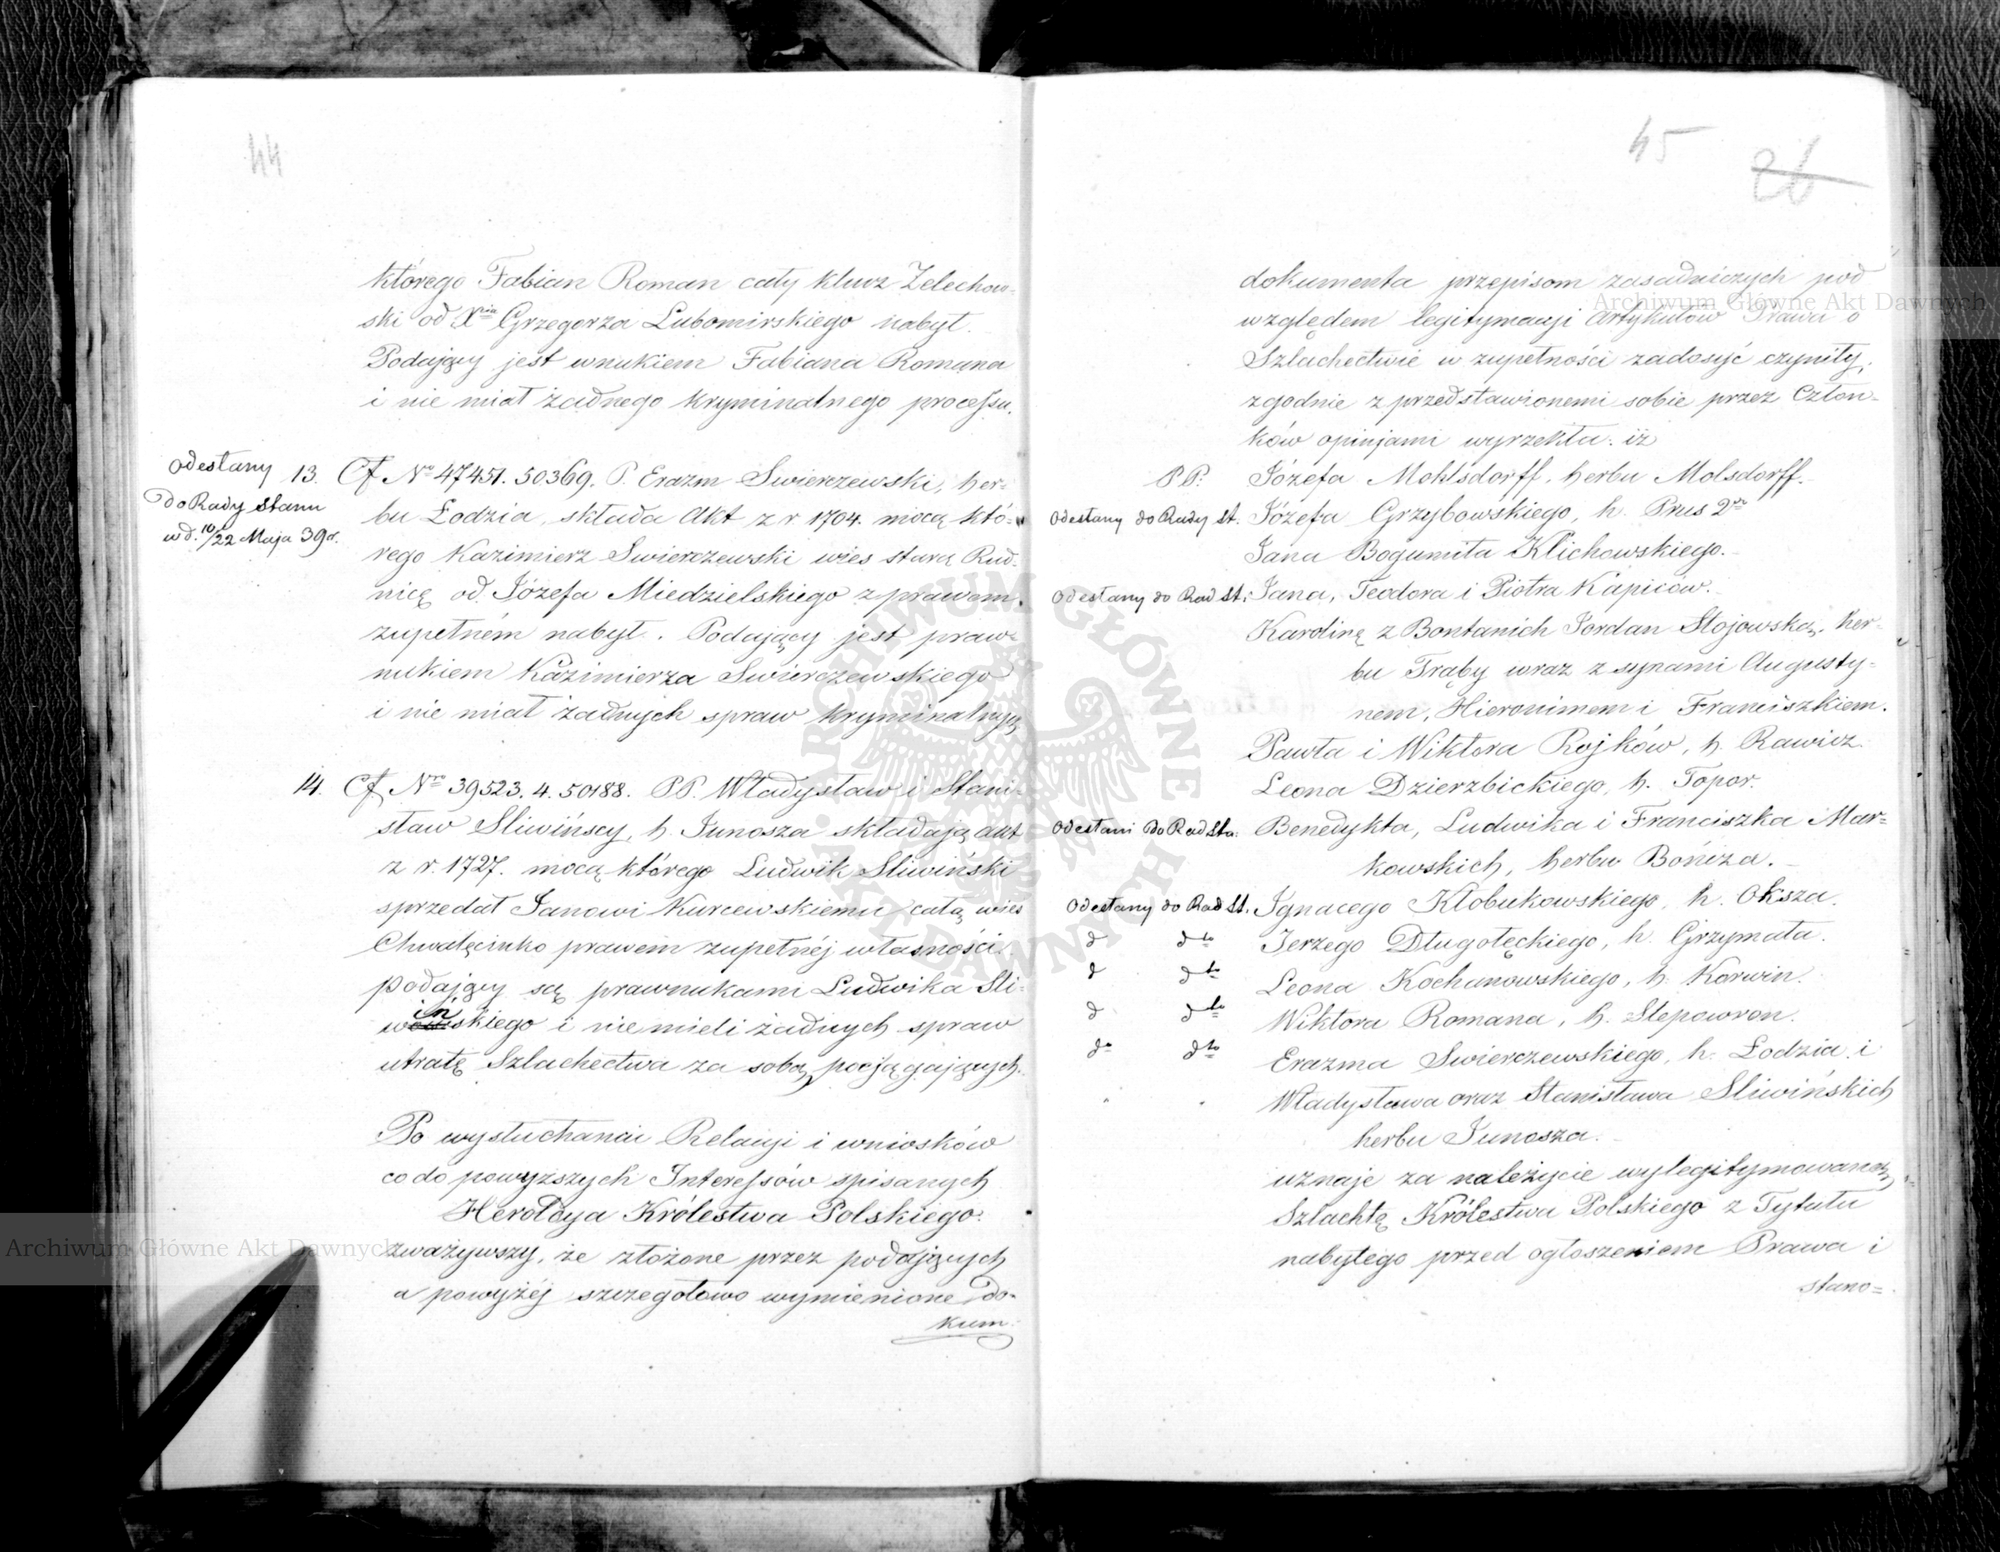 44
którego Fabian Roman cały klucz Żelechow-
ski od Xcia Grzegorza Lubomirskiego nabył.
Podający jest wnukiem Fabiana Romana
i nie miał żadnego kryminalnego processu.
Odesłany
do Rady Stanu
w d. 10/22 Maja 39 r.
13. Cf No 47451. 50369. P. Erazm Swierczewski, her-
bu Łodzia, składa Akt z r 1704. mocą któ-
rego Kazimierz Swierczewski wieś starą Rud-
nicę od Józefa Miedzielskiego z prawem
zupełném nabył. Podający jest praw-
nukiem Kazimierza Swierczewskiego
i nie miał żadnych spraw kryminalnych
14. Cf Nro 39523.4. 50188. PP. Władysław i Stani-
sław Sliwińscy, h. Junosza składają akt
z r. 1727. mocą którego Ludwik Sliwiński
sprzedał Janowi Kurcewskiemu całą wieś
Chwalęcinko prawem zupełnéj własności.
Podający są prawnukami Ludwika Sli-
wińskiego i nie mieli żadnych spraw
utratę Szlachectwa za sobą pociągających.
Po wysłuchaniu Relacyi i wniosków
co do powyższych Interessów spisanych
Heroldya Królestwa Polskiego:
zważywszy, że złożone przez podających
a powyżéj szczegółowo wymienione do-
kum.
45
26
dokumenta przepisom zasadniczych pod
względem legitymacyi Artykułów Prawa o
Szlachectwie w zupełności zadosyć czyniły,
zgodnie z przedstawionemi sobie przez Człon-
ków opinjami wyrzekła: iż
PP. Józefa Mohlsdorff, herbu Molsdorff.
Odesłany do Rady St. Józefa Grzybowskiego, h. Prus 2do
Jana Bogumiła Klichowskiego.
Odesłany do Rad St. Jana, Teodora i Piotra Kapiców.
Karolinę z Bontanich Jordan Stojowską, her-
bu Trąby wraz z synami Augusty-
nem, Hieronimem i Franciszkiem.
Pawła i Wiktora Rojków, h. Rawicz.
Leona Dzierzbickiego, h. Topor.
Odesłani do Rad Sta. Benedykta, Ludwika i Franciszka Mar-
kowskich, herbu Bończa.
Odesłany do Rad St. Ignacego Kłobukowskiego, h. Oksza.
d dto Jerzego Długołęckiego, h. Grzymała.
d dto Leona Kochanowskiego, h. Korwin.
d dto Wiktora Romana, h. Slepowron.
do dto Erazma Swierczewskiego, h. Łodzia i
" " Władysława oraz Stanisława Sliwińskich
herbu Junosza.
uznaje za należycie wylegitymowaną
Szlachtę Królestwa Polskiego z Tytułu
nabytego przed ogłoszeniem Prawa i
stano=
Archiwum Główne Akt Dawnych
Archiwum Główne Akt Dawnych
ARCHIWUM GŁÓWNE AKT DAWNYCH